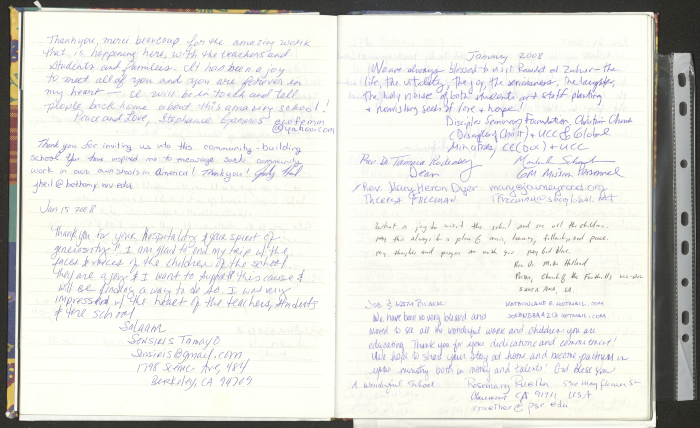 Thank you, merci beaucoup for the amazing work
that is happening here, with the teachers and
students and families. It had been a joy
to meet all of you and you are forever in
my heart — I will be in touch and tell
people back home about this amazing school!
Peace and Love, Stephanie
@yahoo.com
Thank you for inviting us into this community-building
school. You have inspired me to encourage such community
work in own own schools in America! Thank you!
Jan 15 2008
Thank you for your hospitality & your spirit of
generosity! I am glad to end my trip w/ the
faces & voices of the children of the school.
They are a joy & I want to support this cause &
will be finding a way to do so. I was very
impressed w/ the heart of the teachers, students
& the school
Salaam
Sensiris Tamayo
1798 Scenic Ave, 484
Berkeley, CA 94709
January 2008
We are always blessed to visit the
life, the vitality, the joy, the seriousness, the laughter,
the holy noise of both students and staff planting
& nourishing seeds of love & hope!
Disciples Seminary Foundation, Christian Church
(Disciples of Christ) & UCC & Global
Ministries, CC(DOC) & UCC
Rev. Dr. Tamara
Dean
Com Mission Personnel
Rev. Mary Heron Dyer
Theresa Freeman
What a joy to visit this school and see all the children.
May this always be a place of music, learning, fellowship and peace.
My thoughts and prayers are with you. May God bless.
Rev Dr. Mike Holland
Pastor, Church of the Foothills
Santa Ana, CA.
Joe & Kathi Black
We have been so very blessed and
moved to see all the wonderful work and children you are
educating. Thank you for your dedication and commitment!
We hope to share your story at home and become partners in
your ministry both in money and talents! God bless you
A wonderful School Rosemary Ruether
Claremont CA 91711 USA